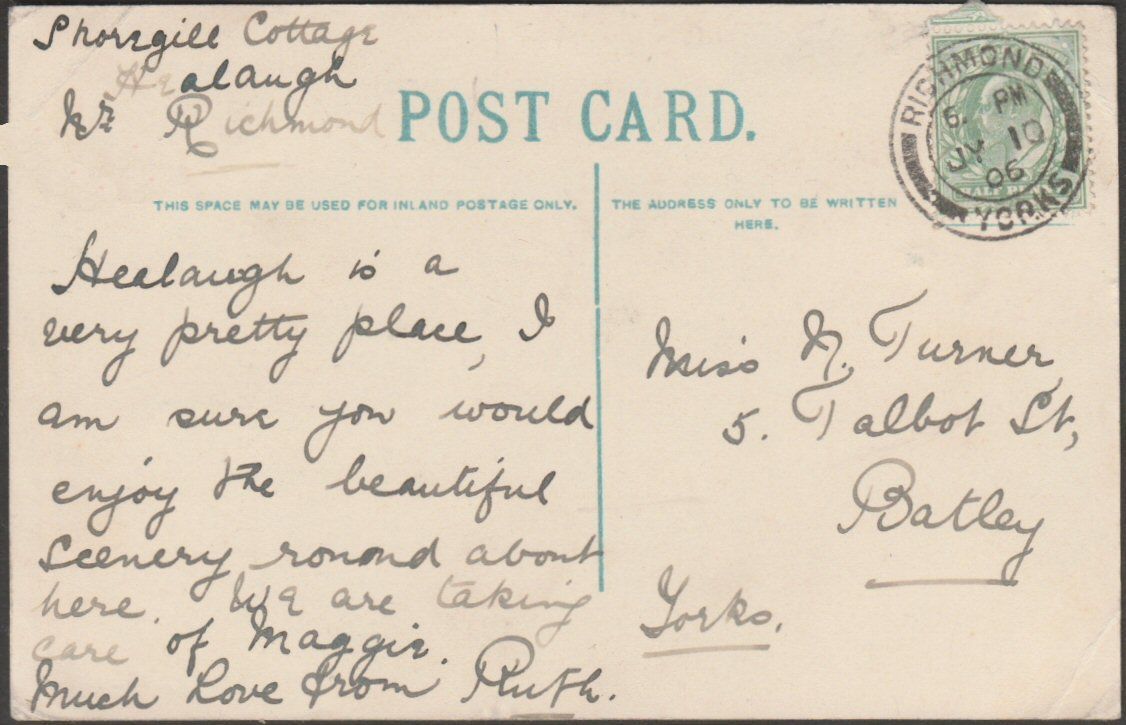 Shoregill Cottage
Healaugh
Nr Richmond
POST CARD.
RICHMOND
6. PM
JY 10
06
YORKS
THIS SPACE MAY BE USED FOR INLAND POSTAGE ONLY.
THE ADDRESS ONLY TO BE WRITTEN
HERE.
Healaugh is a
very pretty place, I
am sure you would
enjoy the beautiful
scenery round about
here. We are taking
care of Maggie.
Much Love from Ruth.
Miss N. Turner,
5. Talbot St,
Batley
Yorks.